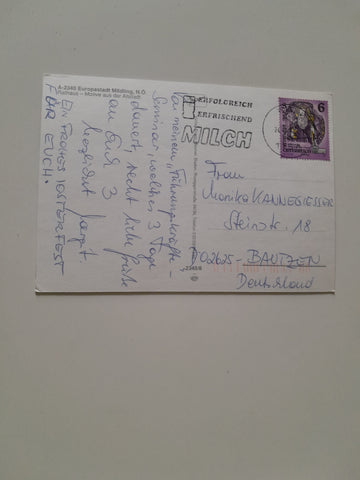 A-2340 Europastadt Mödling, N.Ö.
Rathaus – Motive aus der Altstadt
ERFOLGREICH
ERFRISCHEND
MILCH
6
Von meinem "Führungskräfte-
Seminar", welches 3 Tage
dauert, recht liebe Grüße
an Euch 3
FROHES OSTERFEST
FÜR EUCH.
Frau
Monika KANNEGIESSER
Steinstr. 18
D02625-BAUTZEN
Deutschland